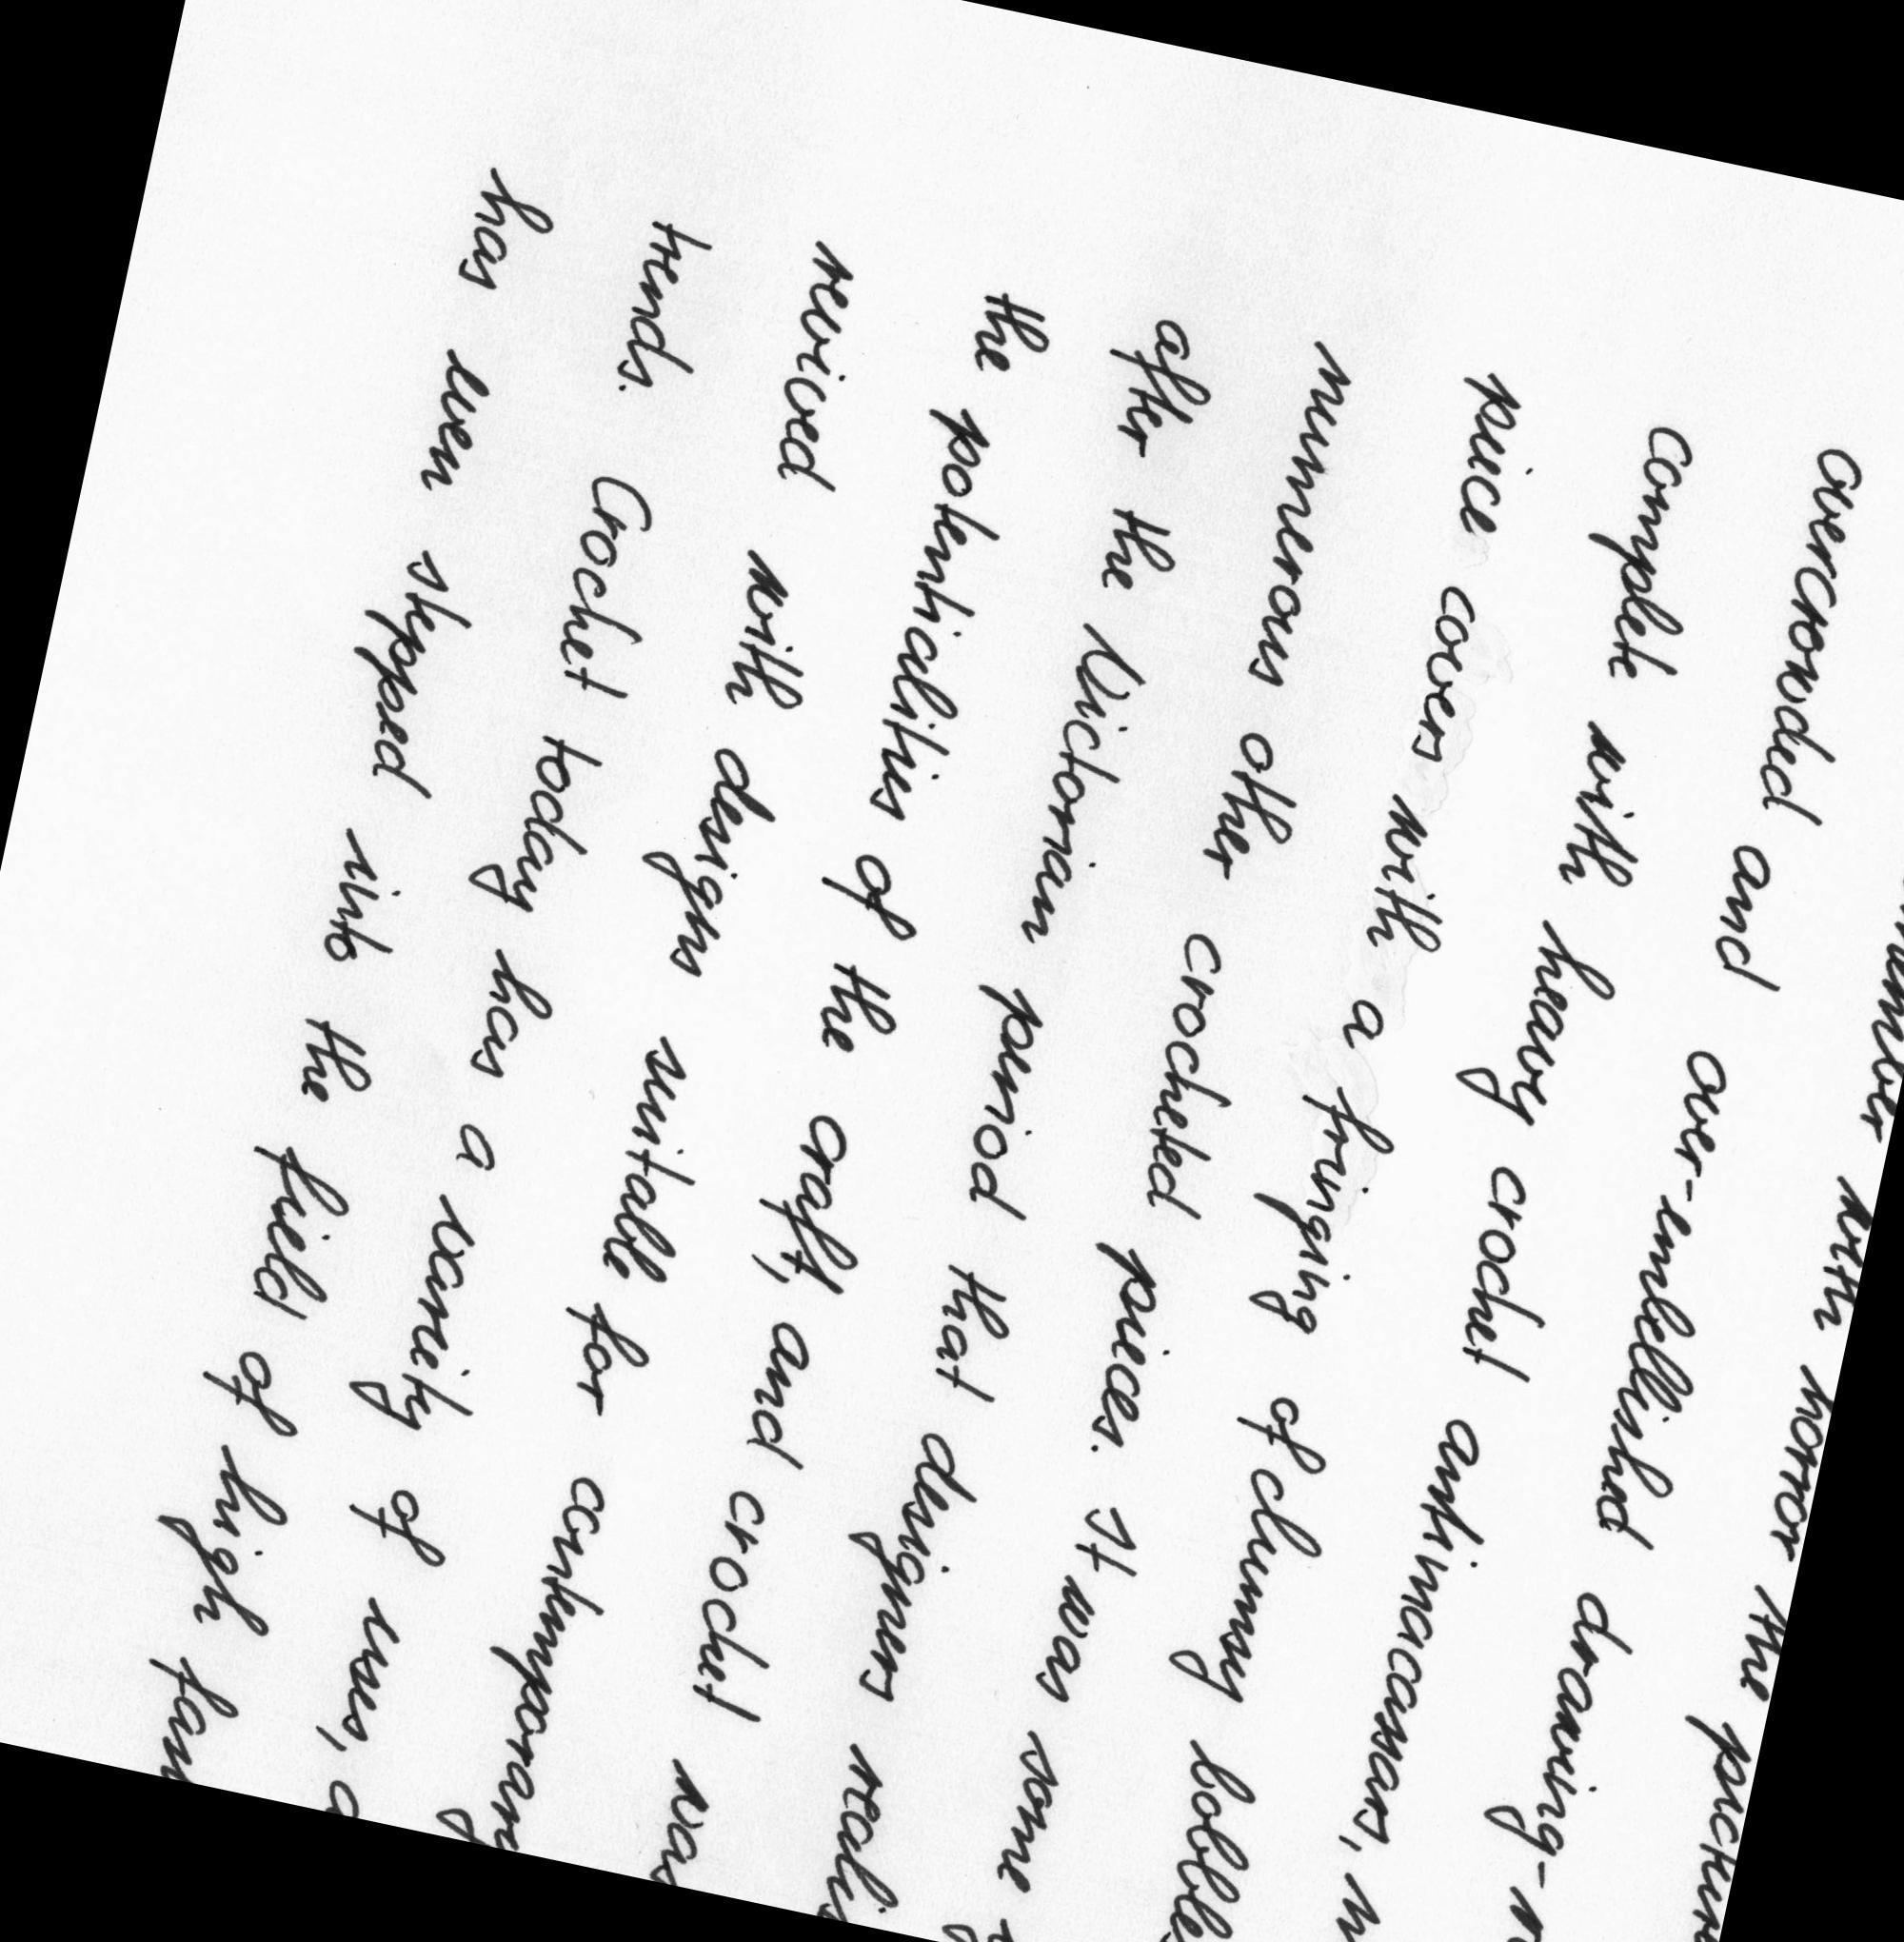 with horror the
overcrowded and over-embellished drawing-
complete with heavy crochet antimacassars,
piece covers with a fringing of clumsy bobble
numerous other crocheted pieces. It was some
after the Victorian period that designers
the potentialities of the craft, and crochet was
revived with designs suitable for contemporary
trends. Crochet today has a variety of uses,
has even stepped into the field of high